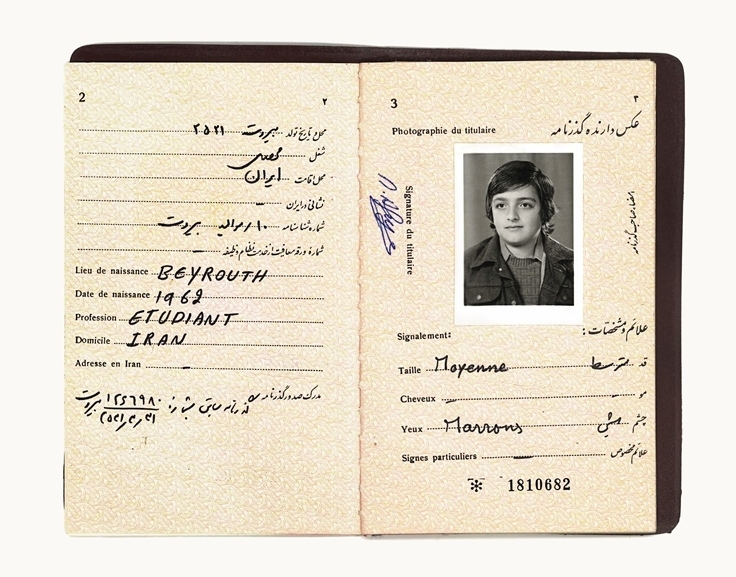 2 ۲
محل و تاریخ تولد بیروت ۲۵۲۱
شغل محصل
محل اقامت ایران
نشانی در ایران
شماره شناسنامه ۱۰ / موالید بیروت
شماره ورقه معافیت از خدمت نظام وظیفه
Lieu de naissance BEYROUTH
Date de naissance 1962
Profession ETUDIANT
Domicile IRAN
Adresse en Iran –
مدرک صدور گذرنامه
بیروت
3 ۳
Photographie du titulaire عکس دارنده گذرنامه
Signature du titulaire
امضاء صاحب گذرنامه
Signalement: علائم و مشخصات :
Taille Moyenne متوسط قد
Cheveux – مو
Yeux Marrons میشی چشم
Signes particuliers — علائم مخصوص
1810682